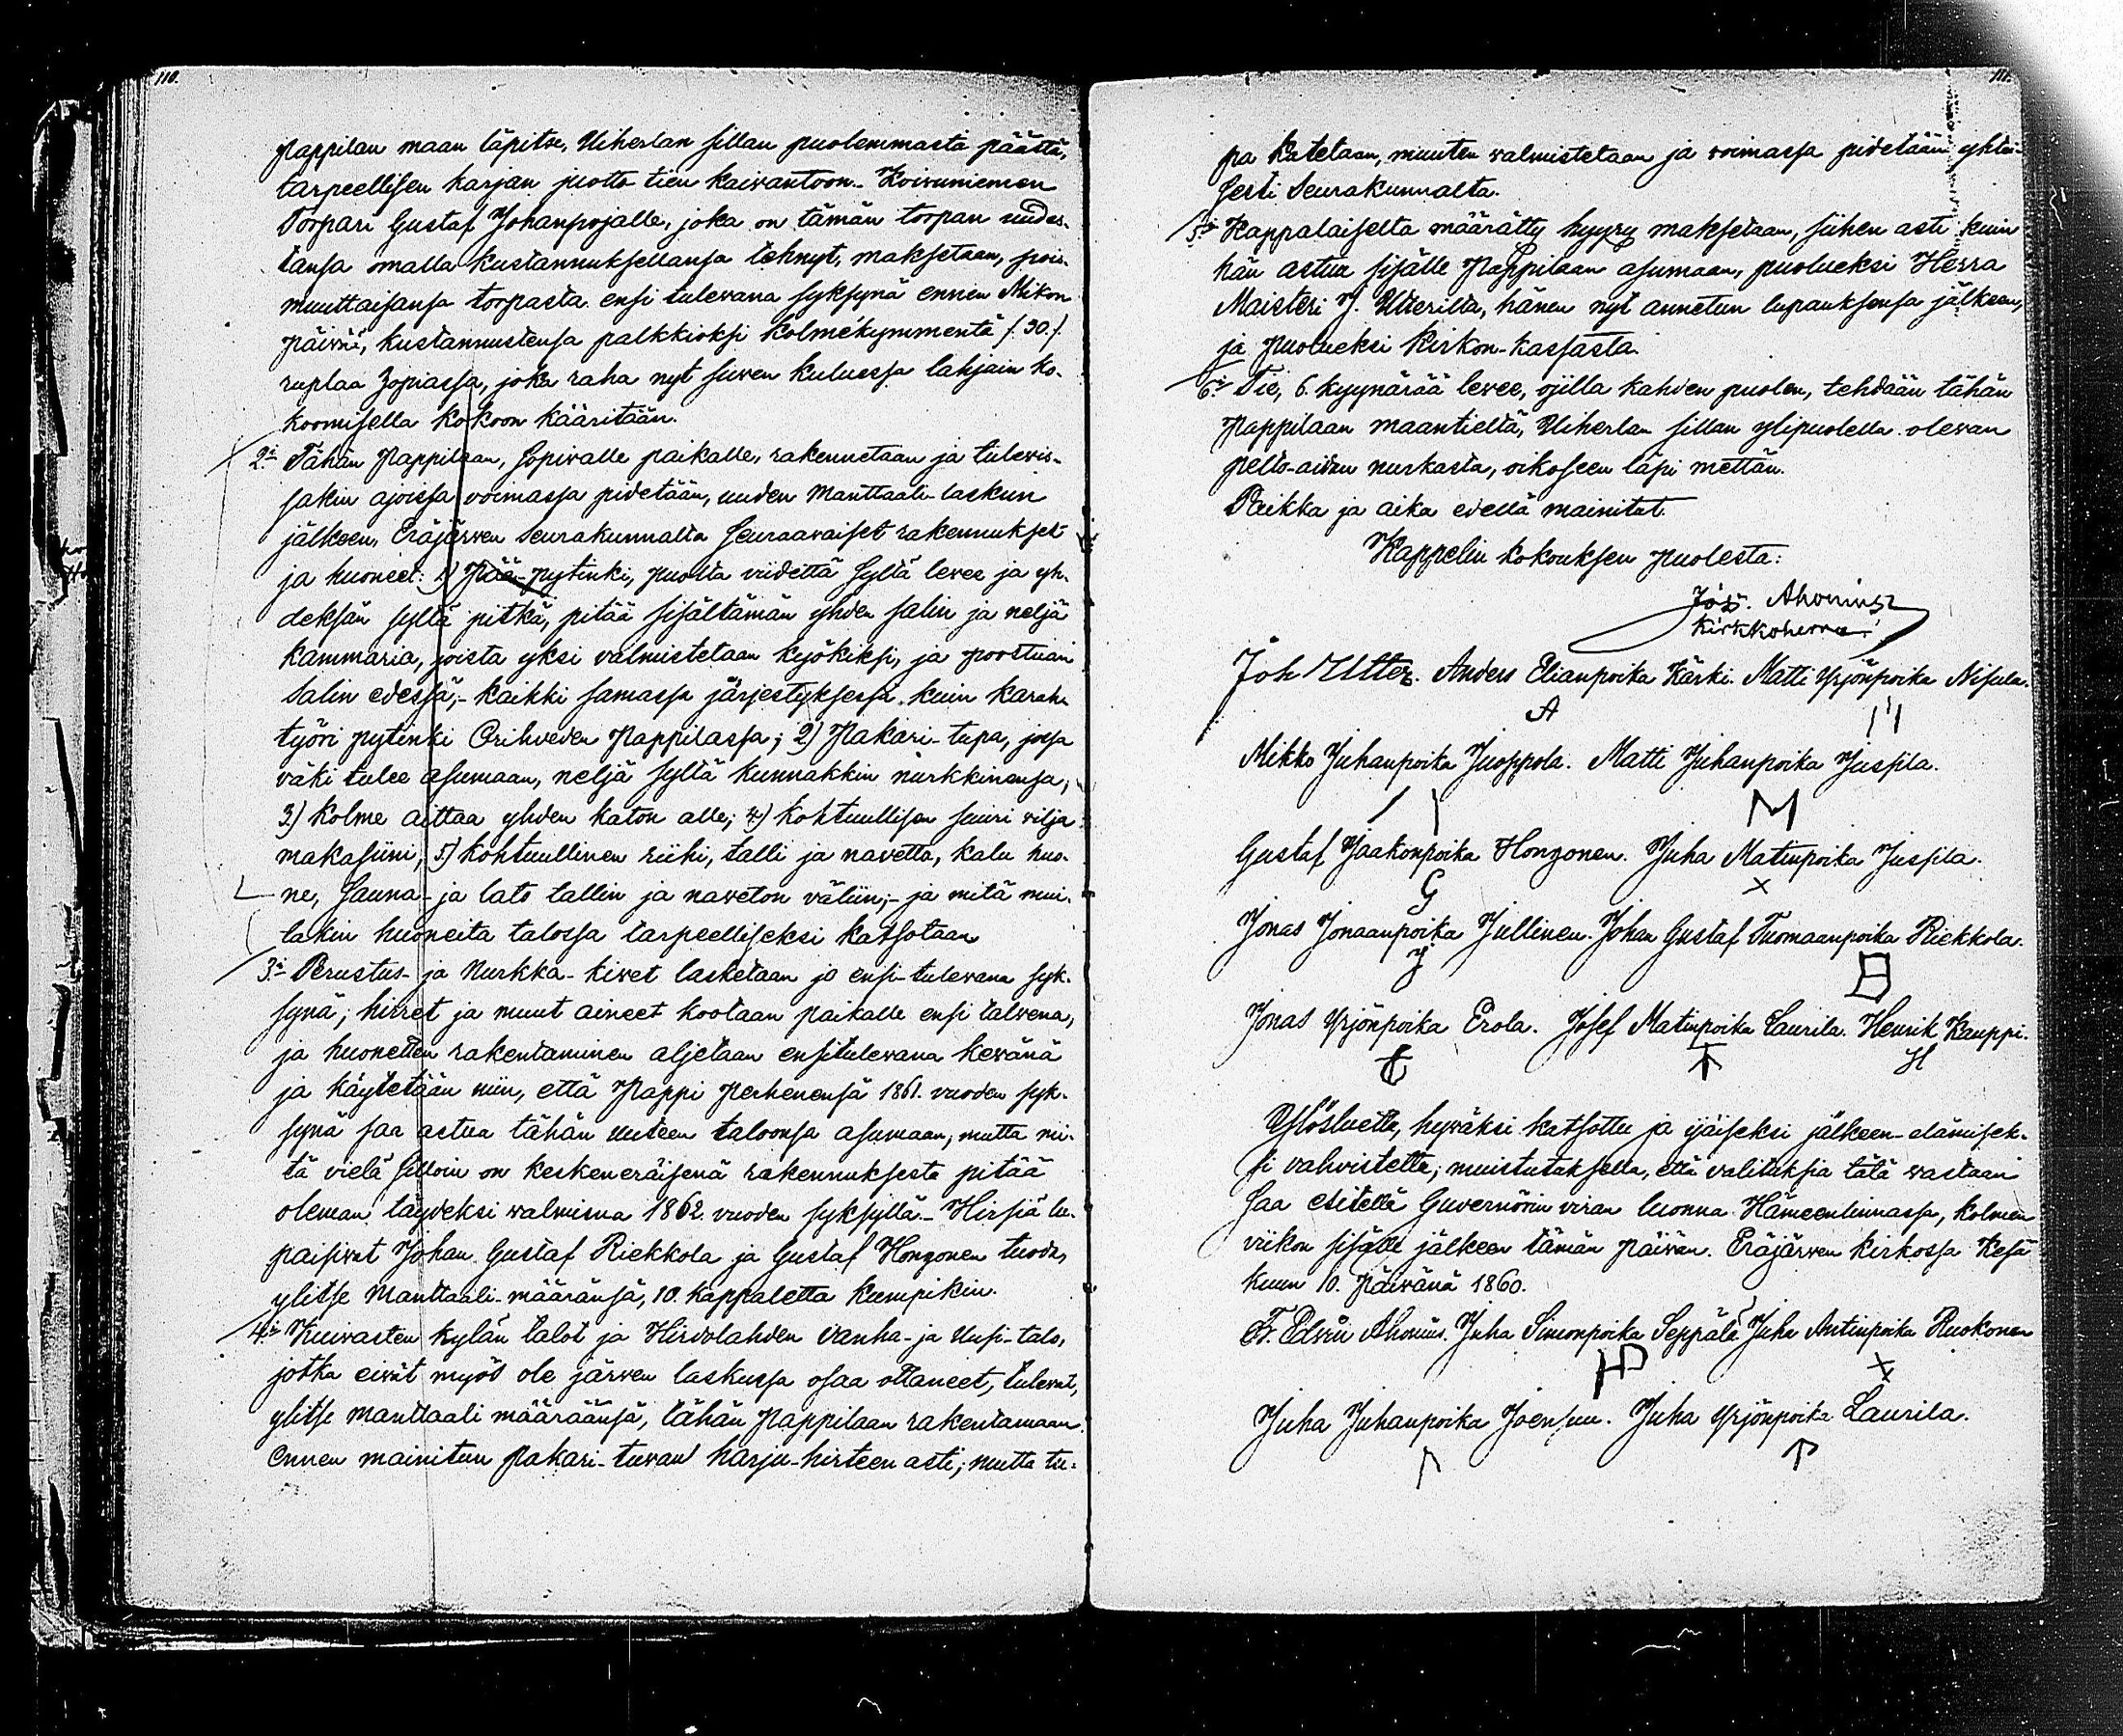 110.
pappilan maan läpitse, Uiherlan sillan puolemmasta päästä,
tarpeellisen karjan juotto tien kaivantoon. Koivuniemen
Torpari Gustaf Johanpojalle, joka on tämän torpan uudes-
tansa omalla kustannuksellansa tehnyt, maksetaan, pois-
muuttaisansa torpasta ensi tulevana syksynä ennen Mikon
päivää, kustannustensa palkkioksi kolmekymmentä /:30:/
ruplaa Hopiassa, joka raha nyt suven kuluessa lahjain ko-
koomisella kokoon kääritään.
2:si Tähän Pappilaan, sopivalle paikalle, rakennetaan ja tulevis-
sakin ajoissa voimassa pidetään, uuden Manttaali-laskun
jälkeen, Eräjärven Seurakunnalta Seuraavaiset rakennukset
ja huoneet: 1) Pää-pytinki, puolta viidettä Syltä levee ja yh-
deksän syltä pitkä, pitää sisältämän yhden salin ja neljä
kammaria, joista yksi valmistetaan kyökiksi, ja poostuan
Salin edessä;- kaikki samassa järjestyksessä kuin karah-
työri pytinki Orihveden Pappilassa; 2) Pakari-tupa, jossa
väki tulee asumaan, neljä syltä kunnakkin nurkkinensa;
3.) Kolme aittaa yhden katon alle; 4) Kohtuullisen suuri vilja
makasiini; 5) Kohtuullinen riihi, talli ja navetta, kalu huo-
ne, Sauna- ja lato tallin ja naveton väliin;- ja mitä mui-
takin huoneita talossa tarpeelliseksi katsotaan
3:si Perustus- ja Nurkka-kivet lasketaan jo ensi-tulevana syk-
synä; hirret ja muut aineet kootaan paikalle ensi talvena,
ja huonetten rakentaminen aljetaan ensitulevana kevänä
ja käytetään niin, että Pappi Perhenensä 1861. vuoden syk-
synä saa astua tähän uuteen taloonsa asumaan; mutta mi-
tä vielä silloin on keskeneräisenä rakennuksesta pitää
oleman täydeksi valmisna 1862. vuoden syksyllä.- Hirsiä lu-
paisivat Johan Gustaf Riekkola ja Gustaf Honzonen tuoda,
ylitse Manttaali-määränsä, 10. kappaletta kumpikin.
4:si Kuivasten kylän talot ja Hirvolahden Vanha- ja Uusi-talo,
jotka eivät myös ole järven laskussa osaa ottaneet, tulevat,
ylitse manttaali määräänsä, tähän Pappilaan rakentamaan
Ennen mainitun Pakari-tuvan harju-hirteen asti; mutta tu-
111.
pa katetaan, muuten valmistetaan ja voimassa pidetään yhtei-
sesti Seurakunnalta.
5:si Kappalaiselta määrätty hyyry maksetaan, siihen asti kuin
hän astuu sisälle Pappilaan asumaan, puolueksi Herra
Maisteri J. Utterilta, hänen nyt annetun lupauksensa jälkeen,
ja puolueksi Kirkon-kassasta.
6:si Tie, 6. kyynärää levee, ojilla kahden puolen, tehdään tähän
Pappilaan maantieltä, Uiherlan sillan ylipuolella olevan
pelto-aidan nurkasta, oikoseen läpi mettän.
Paikka ja aika edellä mainitut.
Kappelin kokouksen puolesta:
Jos. Ahonius
Kirkkoherra
Joh Utter. Anders Elianpoika Kärki. Matti Yrjönpoika Nisula.
A
Mikko Juhanpoika Juoppola. Matti Juhanpoika Jussila.
M
Gustaf Jaakonpoika Honzonen. Juha Matinpoika Jussila.
G x
Jonas Jonaanpoika Jullinen. Johan Gustaf Tuomaanpoika Riekkola.
J
Jonas Yrjönpoika Erola. Josef Matinpoika Laurila. Henrik Kauppi.
H
Ylösluettu, hyväksi katsottu ja ijäiseksi jälkeen-elämisek-
si vahvistettu; muistutuksella, että valituksia tätä vastaan
saa esitellä Guvernörin viran luonna Hämeenlinnassa, kolmen
viikon sisälle jälkeen tämän päivän. Eräjärven kirkossa Kesä
kuun 10. päivänä 1860.
Fr. Edvin Ahonius. Juha Simonpoika Seppälä Juha Antinpoika Ruokonen
HP x
Juha Juhanpoika Joensuu. Juha Yrjönpoika Laurila.